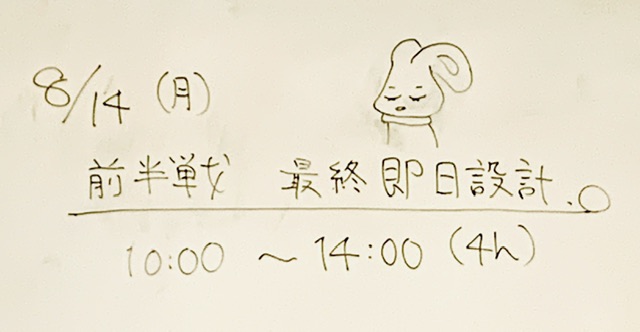 8/14 (月)
前半戦 最終即日設計.。
10:00 〜 14:00 (4h)